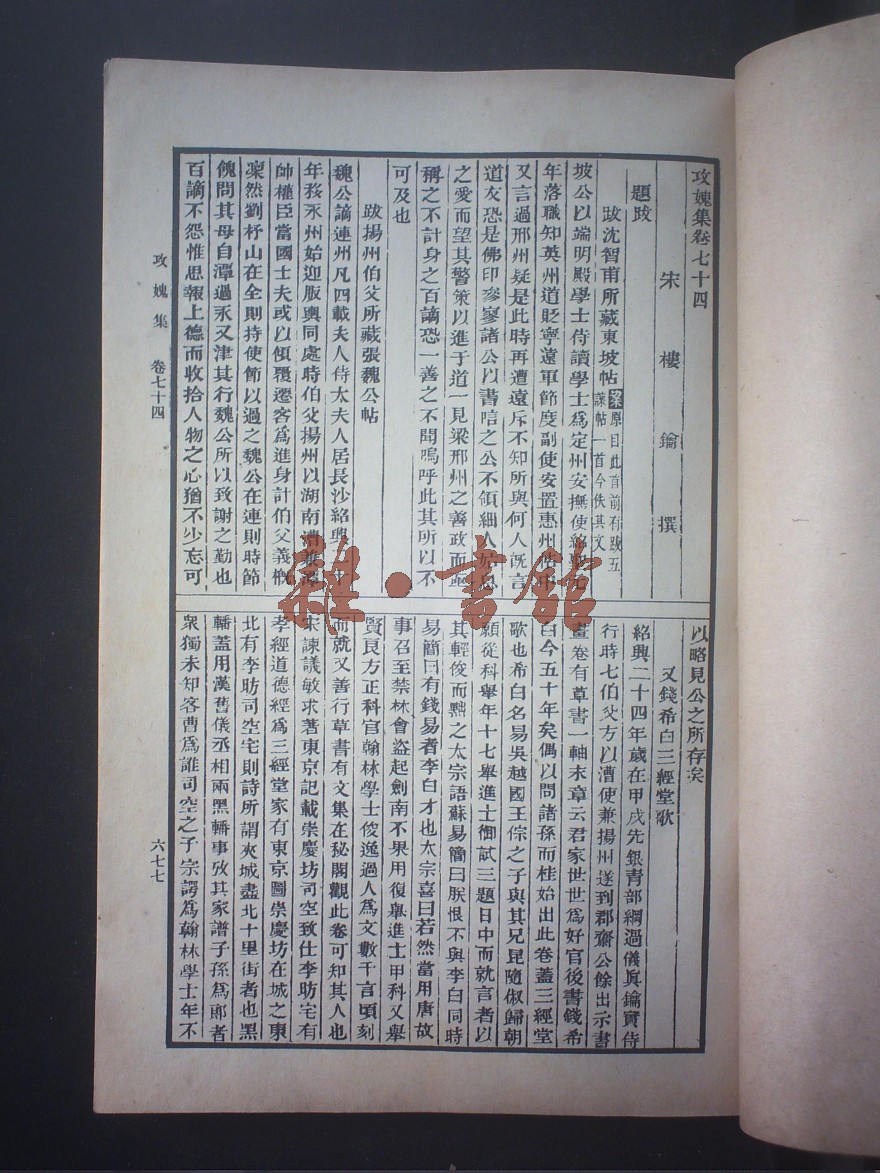 攻媿集卷七十四
宋樓鑰撰
題跋
跋沈智甫所藏東坡帖案原目此首前有跋五
謙帖一首今佚其文
坡公以端明殿學士侍讀學士爲定州安撫使紹聖元
年落職知英州道貶寧遠軍節度副使安置惠州帖中
又言過邢州疑是此時再遭遠斥不知所與何人旣言
道友恐是佛印參寥諸公以書唁之公不領細人姑息
之愛而望其警策以進于道一見梁邢州之善政而亟
稱之不計身之百謫恐一善之不聞嗚呼此其所以不
可及也
跋揚州伯父所藏張魏公帖
魏公謫連州凡四載夫人侍太夫人居長沙紹興二十
年移永州始迎版輿同處時伯父揚州以湖南漕兼潭
帥權臣當國士夫或以傾覆遷客爲進身計伯父義槪
凜然劉杼山在全則持使節以過之魏公在連則時節
餽問其母自潭過永又津其行魏公所以致謝之勤也
百謫不怨惟思報上德而收拾人物之心猶不少忘可
以略見公之所存矣
又錢希白三經堂歌
紹興二十四年歲在甲戌先銀靑部綱過儀眞鑰實侍
行時七伯父方以漕使兼揚州遂到郡齋公餘出示書
畫卷有草書一軸末章云君家世世爲好官後書錢希
白今五十年矣偶以問諸孫而桂始出此卷蓋三經堂
歌也希白名易吳越國王倧之子與其兄昆隨俶歸朝
願從科舉年十七舉進士御試三題日中而就言者以
其輕俊而黜之太宗語蘇易簡曰朕恨不與李白同時
易簡曰有錢易者李白才也太宗喜曰若然當用唐故
事召至禁林會盜起劍南不果用復舉進士甲科又舉
賢良方正科官翰林學士俊逸過人爲文數千言頃刻
而就又善行草書有文集在秘閣觀此卷可知其人也
宋諫議敏求著東京記載崇慶坊司空致仕李昉宅有
孝經道德經爲三經堂家有東京圖崇慶坊在城之東
北有李昉司空宅則詩所謂夾城盡北十里街者也黑
轓蓋用漢舊儀丞相兩黑轓事攷其家譜子孫爲郞者
衆獨未知客曹爲誰司空之子宗諤爲翰林學士年不
攻媿集 卷七十四
六七七
雜·書館